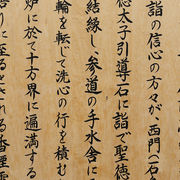 詣の信心の方々が、西門(石
徳太子引導石に詣で聖徳
結縁し、参道の手水舎に
輪を転じて洗心の行を積む
炉に於て十方界に遍満する
至るとされる香煙